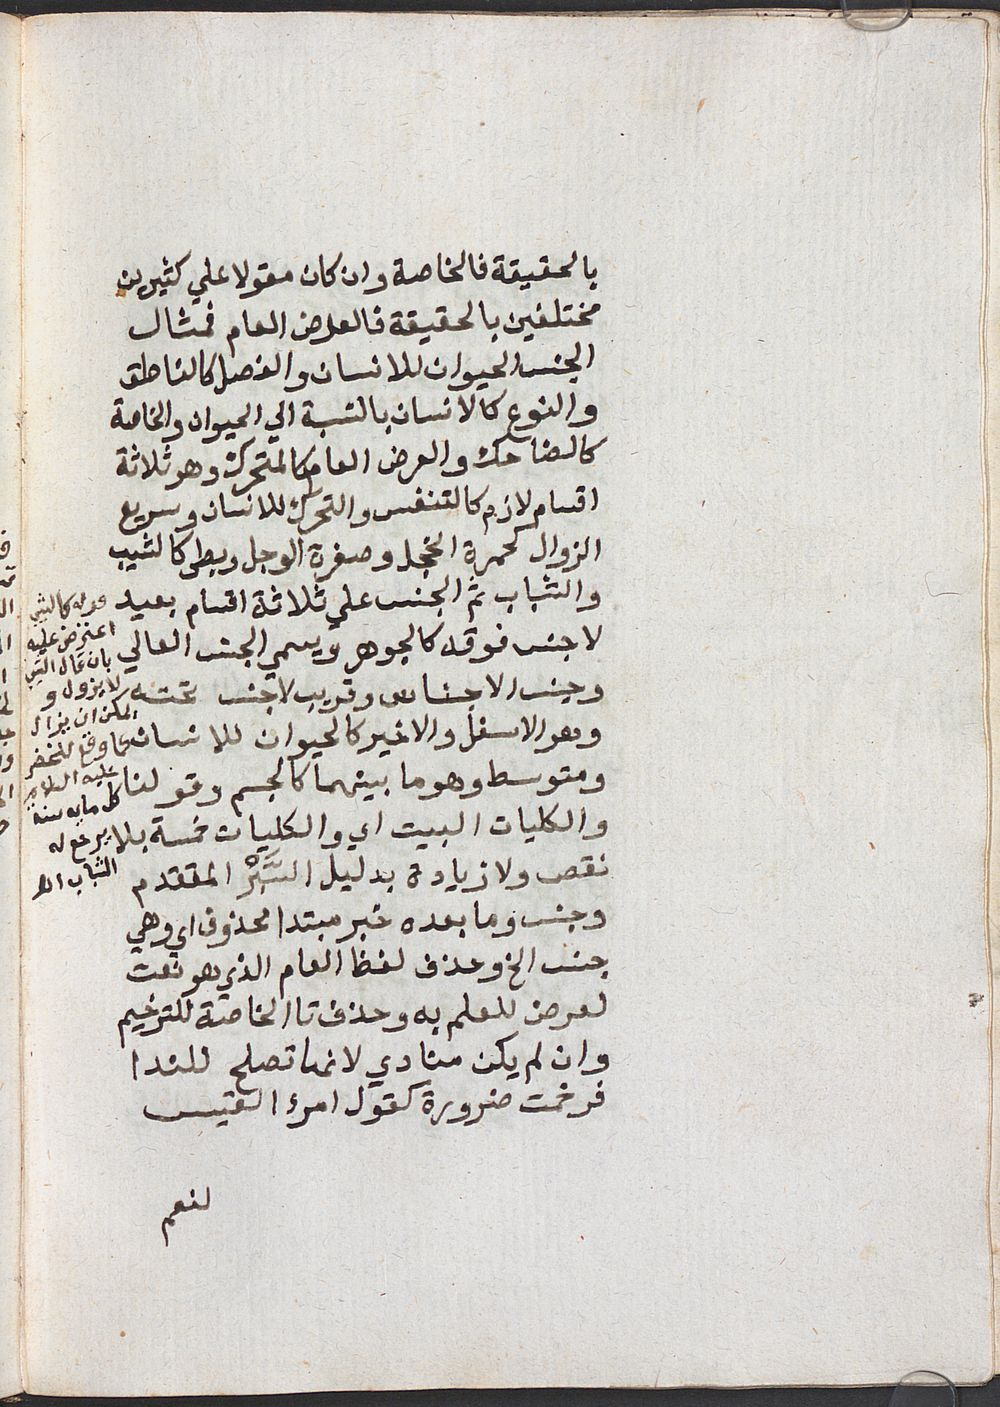 بالحقيقة فالخاصة وان كان مقولا علي كثيرين
مختلفين بالحقيقة فالعرض العام فمثال
الجنس الحيوان للانسان والفصل كالناطق
والنوع كالانسان بالنسبة الي الحيوان والخاصة
كالضاحك والعرض العام كالمتحرك وهو ثلاثة
اقسام لازم كالتنفس والتحرك للانسان وسريع
الزوال كحمرة الخجل وصفرة الوجل وبطي كالشيب
والشباب ثم الجنس علي ثلاثة اقسام بعيد
لا جنس فوقه كالجوهر ويسمي الجنس العالي
وجنس الاجناس وقريب لا جنس تحته
وهو الاسفل والاخير كالحيوان للانسان
ومتوسط وهو ما بينهما كالجسم وقولنا
والكليات البيت اي والكليات خمسة بلا
نقص ولا زيادة بدليل السَّبْر المتقدم
وجنس وما بعده خبر مبتدا محذوف اي وهي
جنس الخ وحذف لفظ العام الذي هو نعت
لعرض للعلم به وحذف تا الخاصة للترخيم
وان لم يكن منادي لانها تصلح للندا
فرخمت ضرورة كقول امرء القيس
لنعم
قوله كالشيب
اعترض عليه
بان
لا يزول و
امكن ان يزال
كما وقع للخضر
عليه السلام
كل مايه سنة
يرجع له
الشباب اهـ